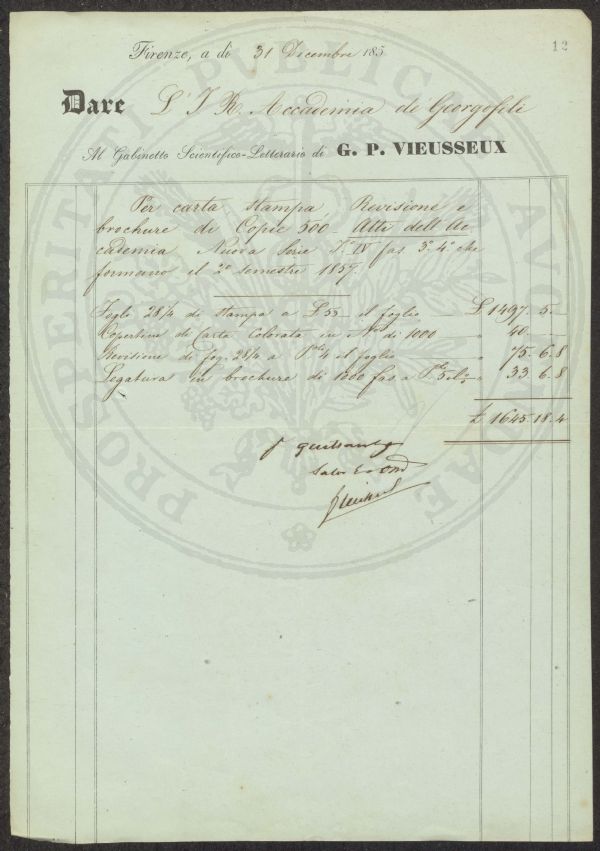 12
Firenze, a dì 31 Decembre 185
Dare L'I R. Accademia de Georgofili
Al Gabinetto Scientifico-Letterario di G. P. VIEUSSEUX
Per carta stampa Revisione e
brochure di Copie 500 Atti dell'Ac-
cademia Nuova Serie T. IV fas 3º. 4º che
formano il 2º semestre 1857.
Fogli 28 1/4 di stampa a £ 53 il foglio £ 1497. 5. -
Copertine di Carta Colorata in Nº di 1000 " 40. -
Revisione di fog. 28/4 a P.li 4 il foglio " 75. 6. 8
Legatura in brochure di 1000 fas a P. " 33. 6. 8
£ 1645. 18. 4
PROSPERITATI PUBLICAE AUGENDAE